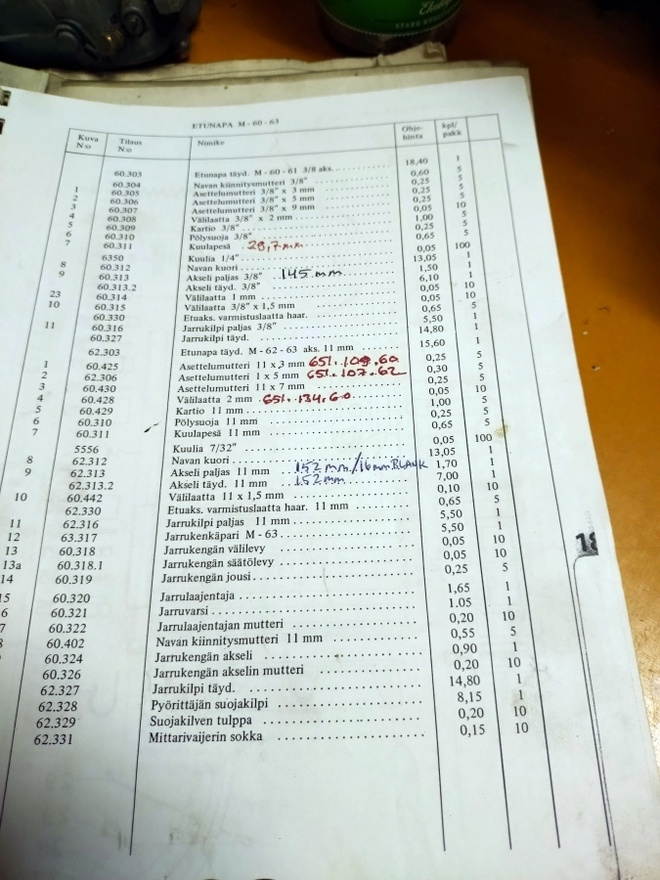 ETUNAPA M - 60 - 63
Kuva N:o Tilaus N:o Nimike Ohje- hinta kpl/ pakk
60.303 Etunapa täyd. M - 60 - 61 3/8 aks. 18,40 1
60.304 Navan kiinnitysmutteri 3/8" 0,60 5
1 60.305 Asettelumutteri 3/8" x 3 mm 0,25 5
2 60.306 Asettelumutteri 3/8" x 5 mm 0,25 5
3 60.307 Asettelumutteri 3/8" x 9 mm 0,25 5
4 60.308 Välilaatta 3/8" x 2 mm 0,05 10
5 60.309 Kartio 3/8" 1,00 5
6 60.310 Pölysuoja 3/8" 0,25 5
7 60.311 Kuulapesä 28,7mm 0,65 5
6350 Kuulia 1/4" 0,05 100
8 60.312 Navan kuori 13,05 1
9 60.313 Akseli paljas 3/8" 145 mm 1,50 1
60.313.2 Akseli täyd. 3/8" 6,10 1
23 60.314 Välilaatta 1 mm 0,05 10
10 60.315 Välilaatta 3/8" x 1,5 mm 0,05 10
60.330 Etuaks. varmistuslaatta haar. 0,65 5
11 60.316 Jarrukilpi paljas 3/8" 5,50 1
60.327 Jarrukilpi täyd. 14,80 1
62.303 Etunapa täyd. M - 62 - 63 aks. 11 mm 15,60 1
1 60.425 Asettelumutteri 11 x 3 mm 651.109.60 0,25 5
2 62.306 Asettelumutteri 1 x 5 mm 651.107.62 0,30 5
3 60.430 Asettelumutteri 11 x 7 mm 0,25 5
4 60.428 Välilaatta 2 mm 651.134.60 0,05 10
5 60.429 Kartio 11 mm 1,00 5
6 60.310 Pölysuoja 11 mm 0,25 5
7 60.311 Kuulapesä 11 mm 0,65 5
5556 Kuulia 7/32" 0,05 100
8 62.312 Navan kuori 13,05 1
9 62.313 Akseli paljas 11 mm 152 mm/16mm BLANK 1,70 1
62.313.2 Akseli täyd. 11 mm 152 mm 7,00 1
10 60.442 Välilaatta 11 x 1,5 mm 0,10 10
62.330 Etuaks. varmistuslaatta haar. 11 mm 0,65 5
11 62.316 Jarrukilpi paljas 11 mm 5,50 1
12 63.317 Jarrukenkäpari M - 63 5,50 1
13 60.318 Jarrukengän välilevy 0,05 10
13a 60.318.1 Jarrukengän säätölevy 0,05 10
14 60.319 Jarrukengän jousi 0,25 5
15 60.320 Jarrulaajentaja 1,65 1
6 60.321 Jarruvarsi 1.05 1
7 60.322 Jarrulaajentajan mutteri 0,20 10
8 60.402 Navan kiinnitysmutteri 11 mm 0,55 5
60.324 Jarrukengän akseli 0,90 1
60.326 Jarrukengän akselin mutteri 0,20 10
62.327 Jarrukilpi täyd. 14,80 1
62.328 Pyörittäjän suojakilpi 8,15 1
62.329 Suojakilven tulppa 0,20 10
62.331 Mittarivaijerin sokka 0,15 10